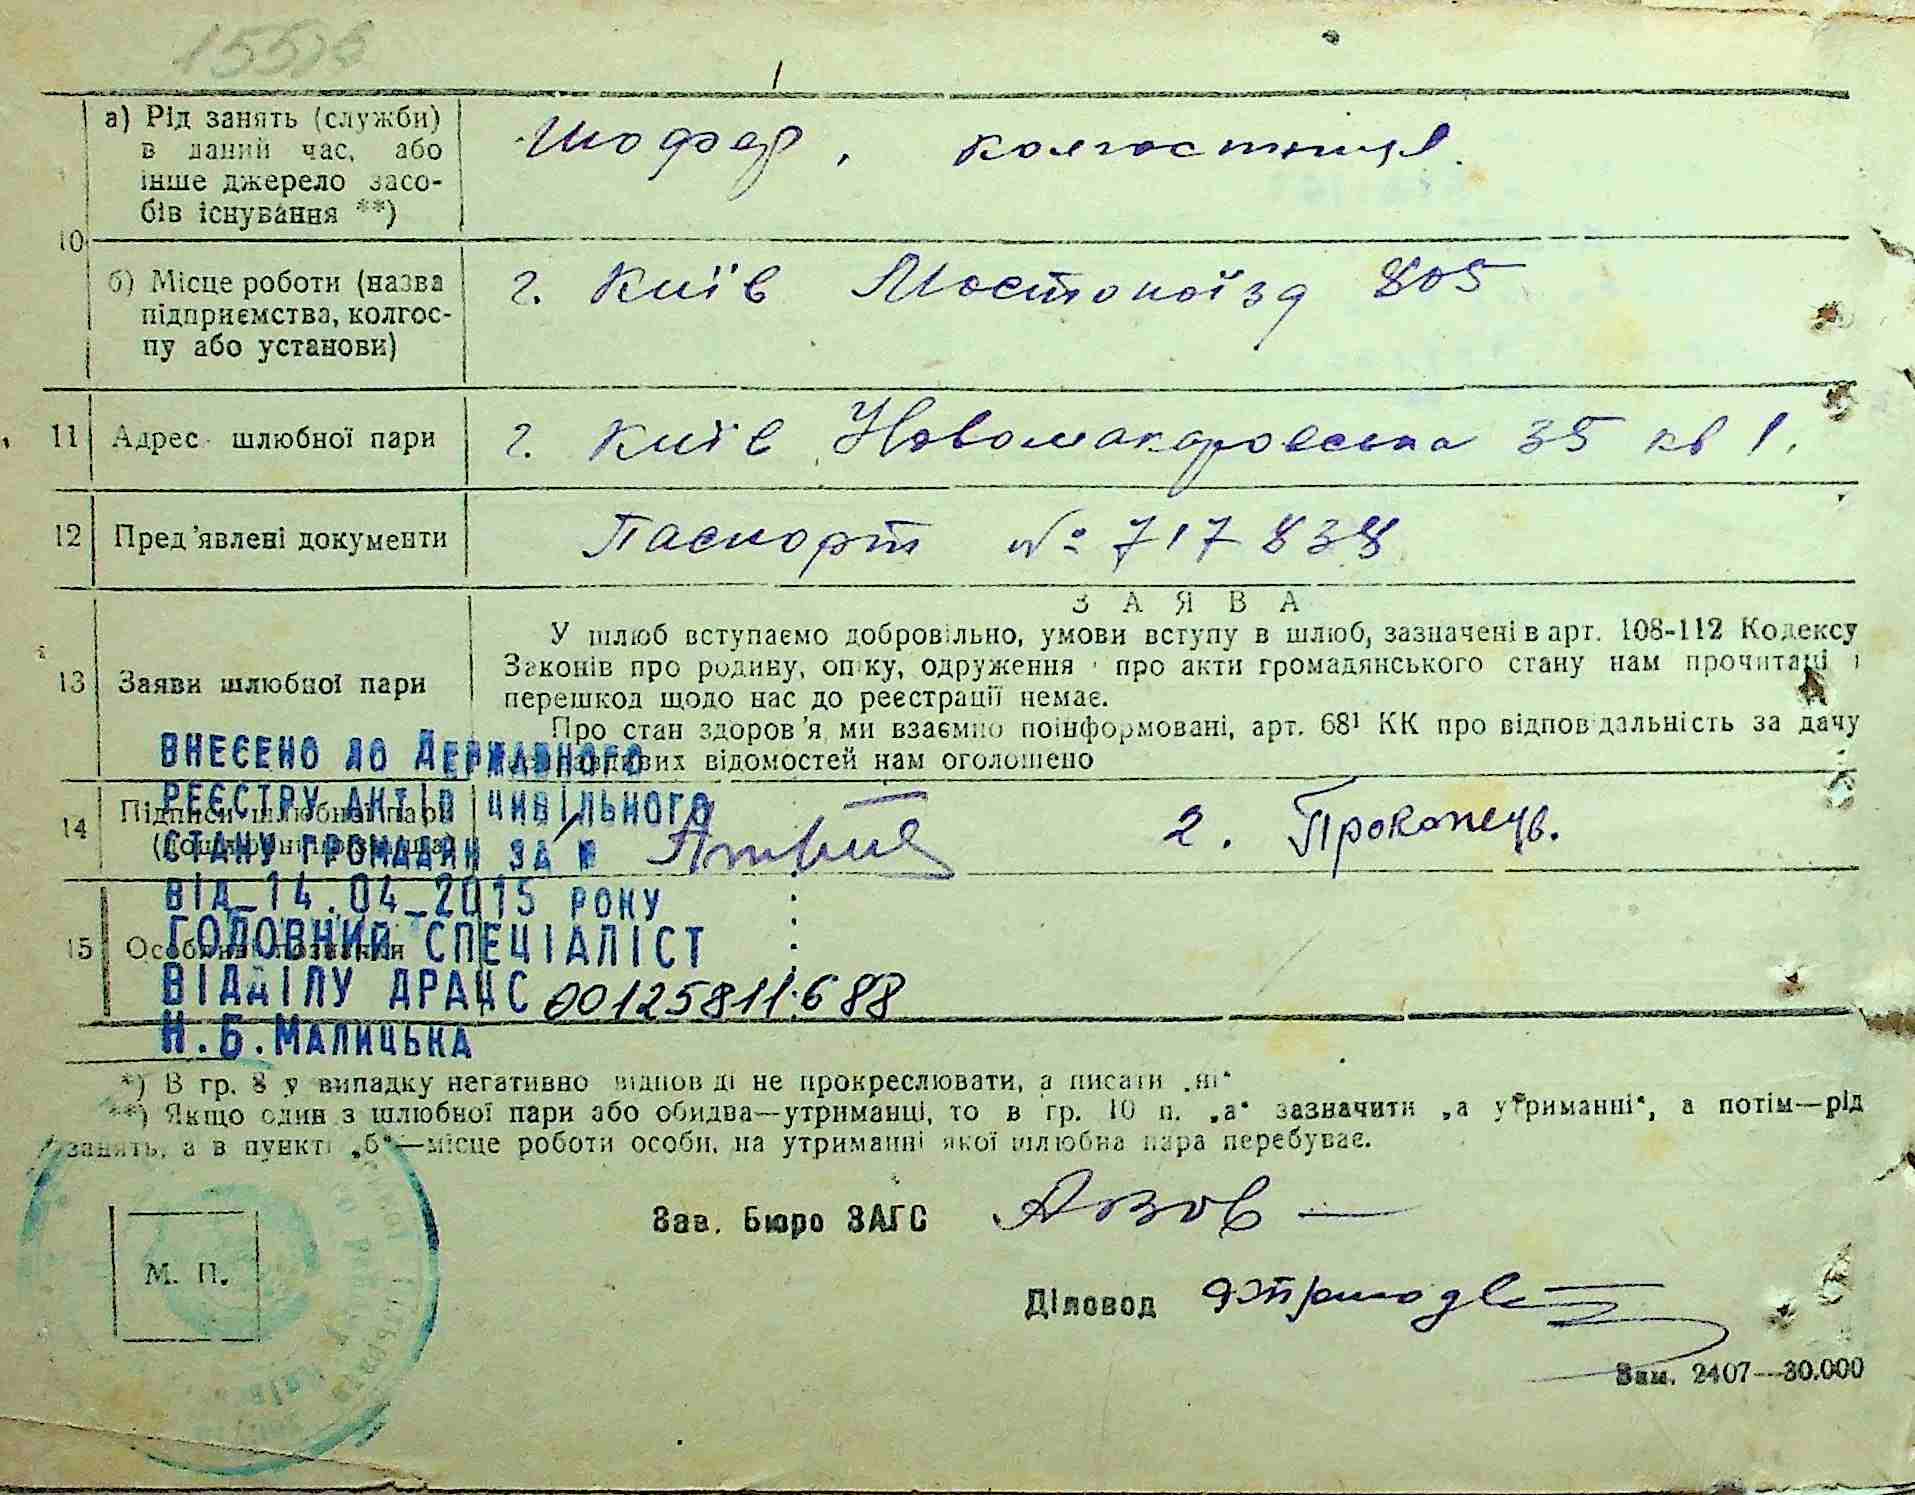 а) Рід занять (служби)
в даний час, або
інше джерело засо-
бів існування **)
Шофер, колгоспниця.
10
б) Місце роботи (назва
підприємства, колгос-
пу або установи)
г. Київ Мостопоїзд 805
11 Адрес шлюбної пари г. Київ Новомакаровська 35 кв 1.
12 Пред'явлені документи Паспорт № 717838
ЗАЯВА
13 Заяви шлюбної пари
У шлюб вступаємо добровільно, умови вступу в шлюб, зазначені в арт. 108-112 Кодексу
Законів про родину, опіку, одруження і про акти громадянського стану нам прочитані і
перешкод щодо нас до реєстрації немає.
Про стан здоров'я ми взаємно поінформовані, арт. 68¹ КК про відповідальність за дачу
відомостей нам оголошено
14 Підписи шлюбної пари
2. Прокопець.
15 Особливі
ВНЕСЕНО ДО ДЕРЖАВНОГО
РЕЄСТРУ АКТІВ ЦИВІЛЬНОГО
СТАНУ ГРОМАДЯН ЗА №
ВІД 14.04.2015 РОКУ
ГОЛОВНИЙ СПЕЦІАЛІСТ
ВІДДІЛУ ДРАЦС 00125811688
Н.Б.МАЛИЦЬКА
*) В гр. 8 у випадку негативно відповіді не прокреслювати, а писати „ні“
**) Якщо один з шлюбної пари або обидва—утриманці, то в гр. 10 п. „а“ зазначити „а утриманні“, а потім—рід
занять, а в пункті „б“—місце роботи особи, на утриманні якої шлюбна пара перебуває.
Зав. Бюро ЗАГС
М. П.
Діловод
Зам. 2407—30.000